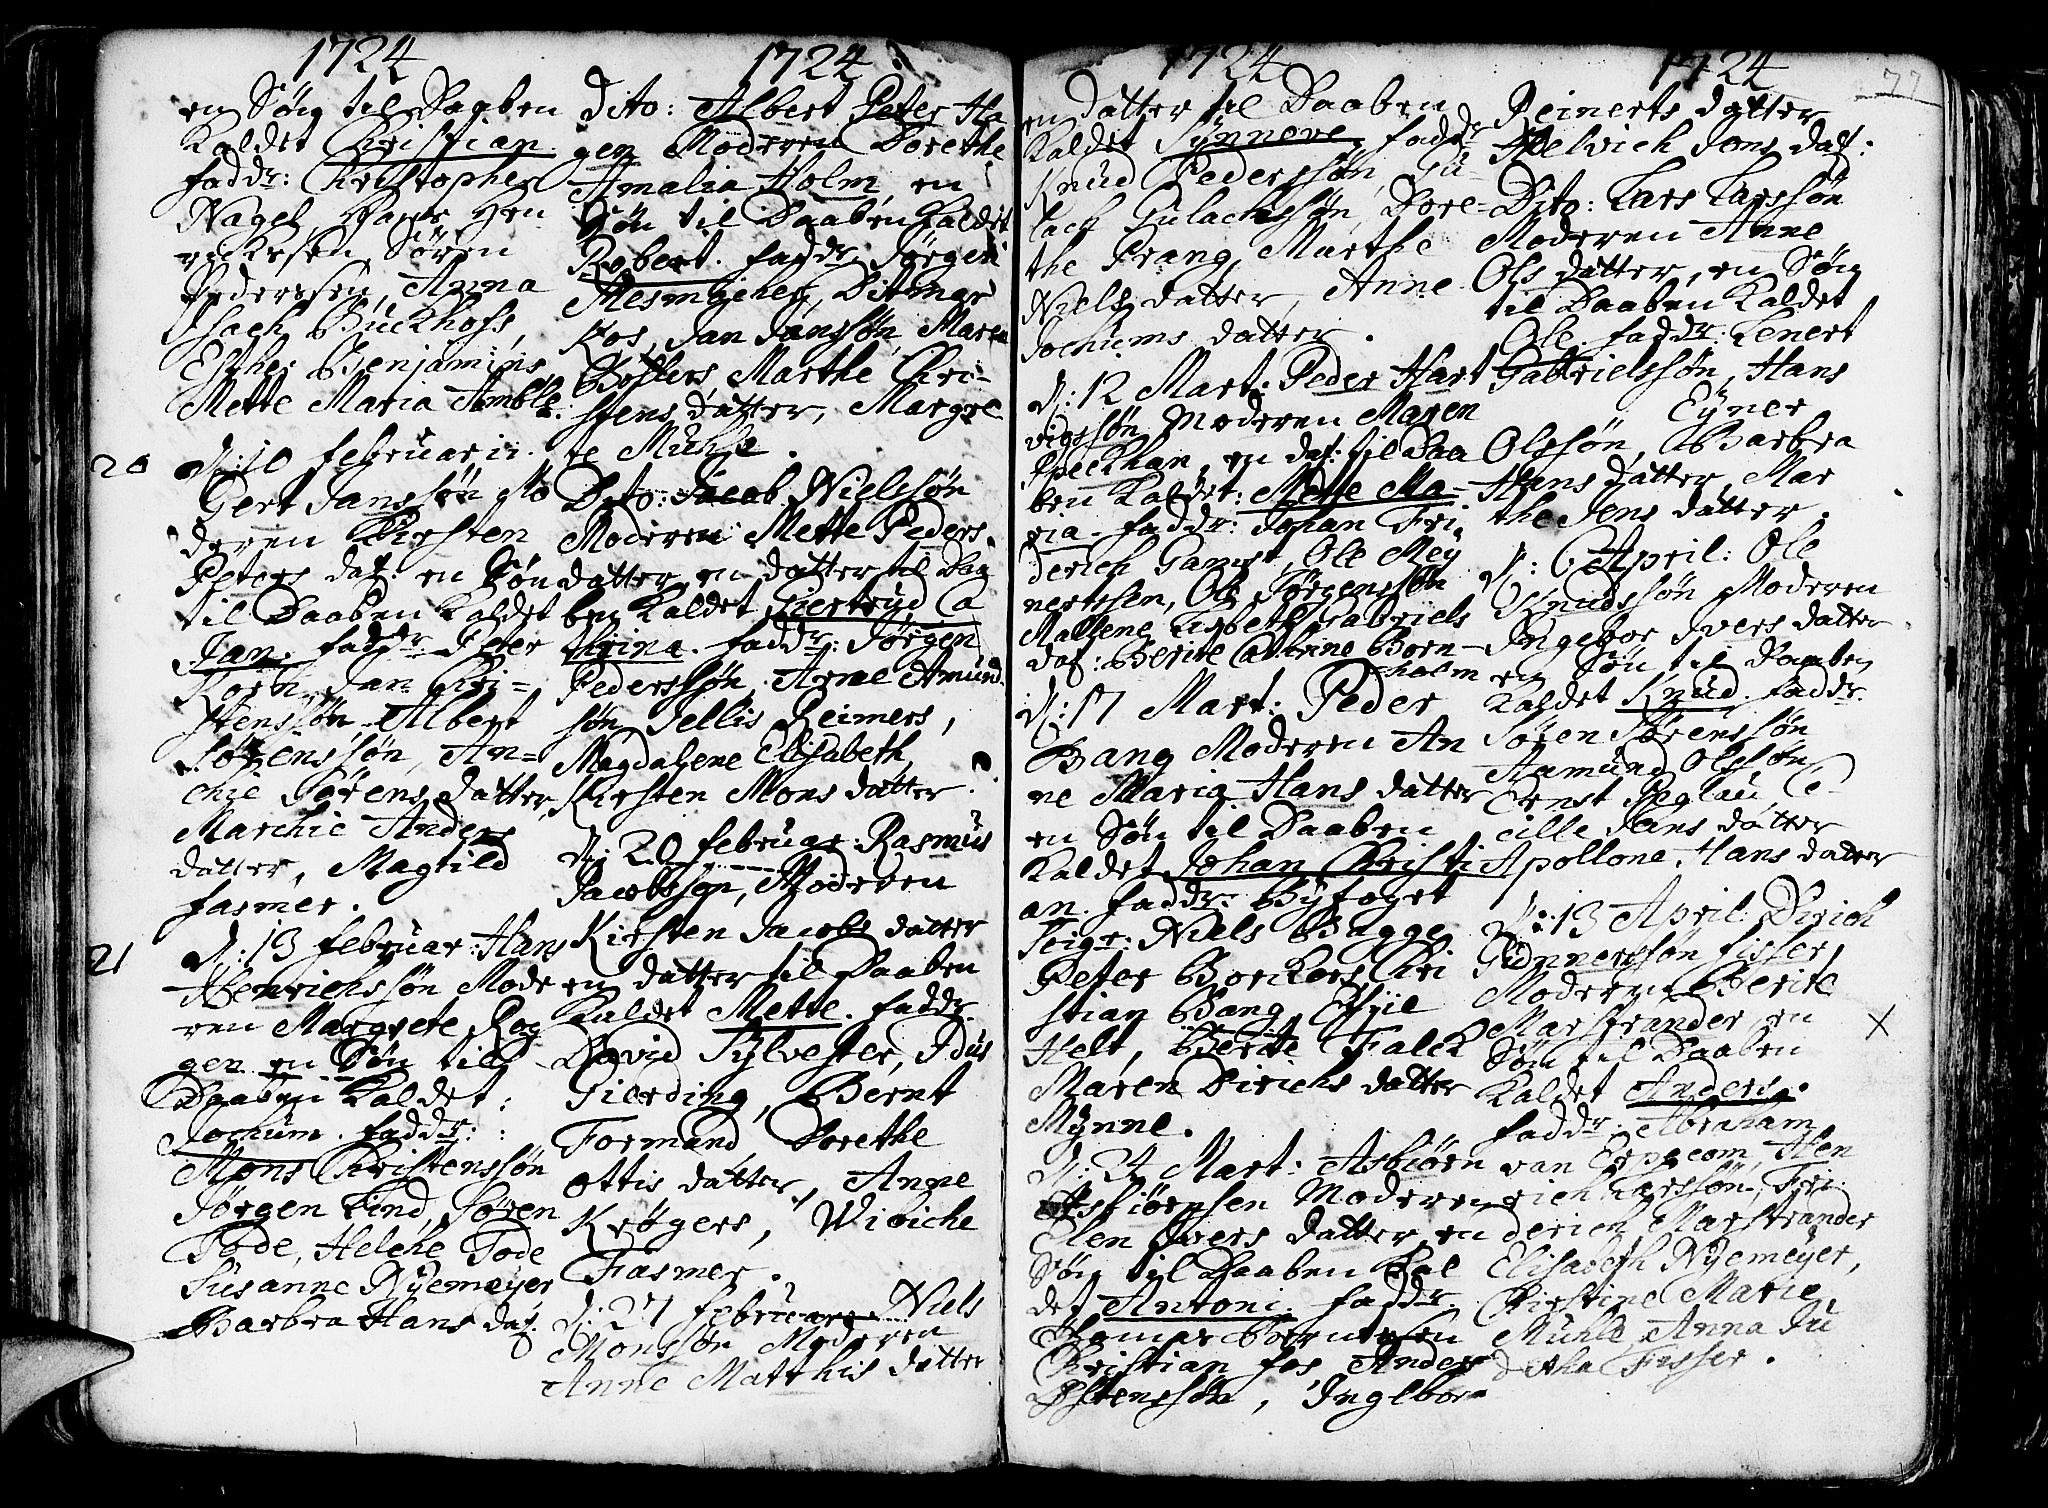 1724
en Søn til Daaben
Kaldet Christian
faddr: Christopher
Nagel, Hans Hen
richsen, Søren
Pederssen, Anna
Isach Buckhofs,
Esther Benjamins
Mette Maria Amble.
20 d: 10 februarii.
Gert Janssøn Mo
deren Kirsten
Peters dat: en Søn
til Daaben Kaldet
Jan. faddr: Peter
Koch, Jan Chri-
stenssøn Albert
Sørenssøn, An-
chie Sørens datter,
Marchie Anders
datter, Magtild
fasmer.
21 d: 13 februar: Hans
Henrichssøn Mode
ren Margrete Rog
gen en Søn til
Daaben Kaldet:
Jochum. faddr:
Mons Christenssøn
Jørgen Lind, Søren
Tode, Helche Tode
Susanne Nyemeyer
Barbra Hans dat.
1724
Dito: Albert Peter Ha
gen Moderen Dorethe
Amalia Holm en
Søn til Daaben Kaldet
Robert. faddr. Jørgen
Ditmar
Kos, Jan Janssøn, Maren
Marthe Chri-
stens datter, Margre
te Muhle.
Dito: Jacob Nielssøn
Moderen Mette Peders
datter en datter til Daa
ben Kaldet Giertrud Ca
thrina. faddr: Jørgen
Pederssøn, Arne Amund
søn Jellis Reimers,
Magdalene Elisabeth,
Kirsten Mons datter.
d: 20 februar: Rasmus
Jacobssøn, Moderen
Kirsten Jacobs datter
en datter til Daaben
Kaldet Mette. faddr.
David Sylvester, Idus
Gierding, Bernt
Formand Dorethe
Ottis datter, Anne
Krøgers, Wibiche
Fasmer.
d: 27 februar: Niels
Monssøn Moderen
Anne Matthis datter
1724
en datter til Daaben
Kaldet Synneve faddr
Knud Pederssøn, Gu-
lach Gulachssøn, Dore-
the Prang, Marthe
Niels datter, Anne
Jochums datter.
d: 12 Mart: Peder Hart
vigssøn Moderen Maren
Speckhan, en dat: til Daa
ben Kaldet: Mette Ma-
ria. faddr: Johan Fri
derich Gamst, Ole Mey
nertsen, Ole Jørgenssøn
Mallene Lisbeth Gabriels
dat: Berite Cathrine Born-
holm
d: 17 Mart: Peder
Bang Moderen An
ne Maria Hans datter
en Søn til Daaben
Kaldet Johan Christi
an. faddr: Byfoget
Seigr: Niels Bugge
Peter Chri
stian Bang,
Helt, Berite Falck
Maren Dirichs datter
Mynne.
d: 24 Mart: Asbiørn
Asbiørnsen Moderen
Elen Ivers datter en
Søn til Daaben Kal
det Antoni. faddr.
Thomas
Christian fos Anders
Ostenssøn, Ingebor
1724
77
Reinerts datter
Helvich Jons dat:
Dito: Lars Larssøn
Moderen Anne
Ols datter, en Søn
til Daaben Kaldet
Ole. faddr: Lenert
Gabrielssøn, Hans
Eyner
Olssøn, Barbra
Hans datter, Mar
the Jens datter.
d: 6 April: Ole
Knudssøn Moderen
Ingebor Ivers datter
en Søn til Daaben
Kaldet Knud. faddr.
Søren Sørenssøn
Aamund Olssøn
Ernst Peglau Ce-
cille Jans datter
Apollone Hans datter
d: 13 April: Dirich
Gunnerssøn fisser,
Moderen Berite
Marstrander, en X
Søn til Daaben
Kaldet Anders.
faddr: Abraham
van Erpecom, Hen
rich Larssøn, Fri
derich Marstrander
Elisabeth Nyemeyer,
Christine Marie
Muhle Anna Ju
ditha Fisser.